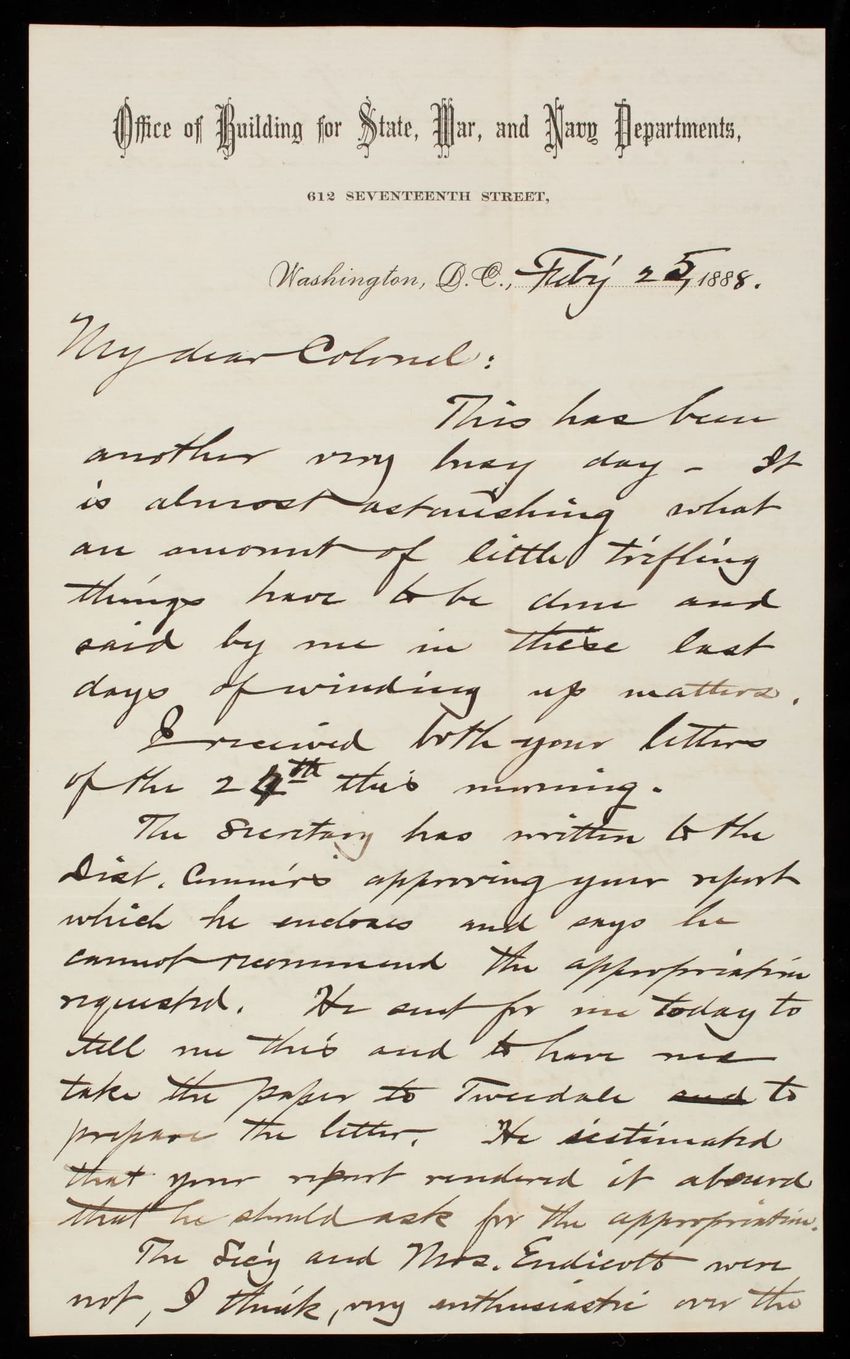 Office of Building for State, War, and Navy Departments,
612 SEVENTEENTH STREET,
Washington, D. C., Feb'y 25, 1888.
My dear Colonel:
This has been
another very busy day - It
is almost astonishing what
an amount of little trifling
things have to be done and
said by me in these last
days of winding up matters.
I received both your letters
of the 24th this morning.
The Secretary has written to the
Dist. Comm'rs approving your report
which he endorses and says he
cannot recommend the appropriation
requested. He sent for me today to
tell me this and to have me
take the paper to Tweedale and to
prepare the letter. He intimated
that your report rendered it absurd
that he should ask for the appropriation.
The Sec'y and Mrs. Endicott were
not, I think, very enthusiastic over the